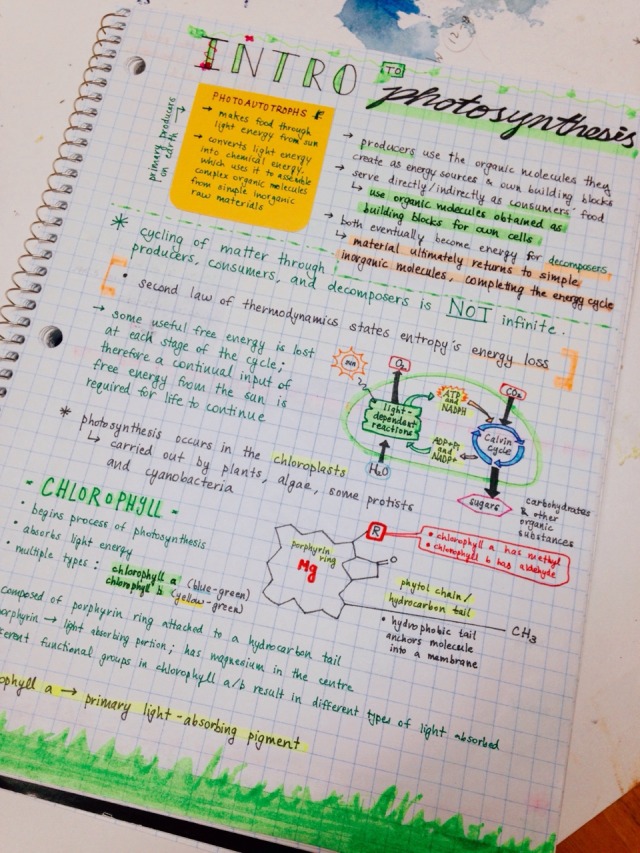 INTRO TO photosynthesis
primary producers
on earth
PHOTOAUTOTROPHS
→ makes food through
light energy from sun
→ converts light energy
into chemical energy,
which uses it to assemble
complex organic molecules
from simple inorganic
raw materials
→ producers use the organic molecules they
create as energy sources & own building blocks
→ serve directly/indirectly as consumers' food
↳ use organic molecules obtained as
building blocks for own cells
→ both eventually become energy for decomposers
↳ material ultimately returns to simple
inorganic molecules, completing the energy cycle
* cycling of matter through
producers, consumers, and decomposers is NOT infinite.
• second law of thermodynamics states entropy's energy loss
→ some useful free energy is lost
at each stage of the cycle;
therefore a continual input of
free energy from the sun is
required for life to continue
sun
O₂
light-
dependent
reactions
H₂O
ATP
and
NADPH
ADP+Pi
and
NADP+
CO₂
Calvin
cycle
sugars
carbohydrates
& other
organic
substances
* photosynthesis occurs in the chloroplasts
↳ carried out by plants, algae, some protists
and cyanobacteria
- CHLOROPHYLL -
• begins process of photosynthesis
• absorbs light energy
• multiple types: chlorophyll a (blue-green)
chlorophyll b (yellow-green)
porphyrin
ring
Mg
R
• chlorophyll a has methyl
• chlorophyll b has aldehyde
O
phytol chain/
hydrocarbon tail
• hydrophobic tail
anchors molecule
into a membrane
CH₃
composed of porphyrin ring attached to a hydrocarbon tail
porphyrin → light absorbing portion; has magnesium in the centre
ferent functional groups in chlorophyll a/b result in different types of light absorbed
ophyll a → primary light-absorbing pigment